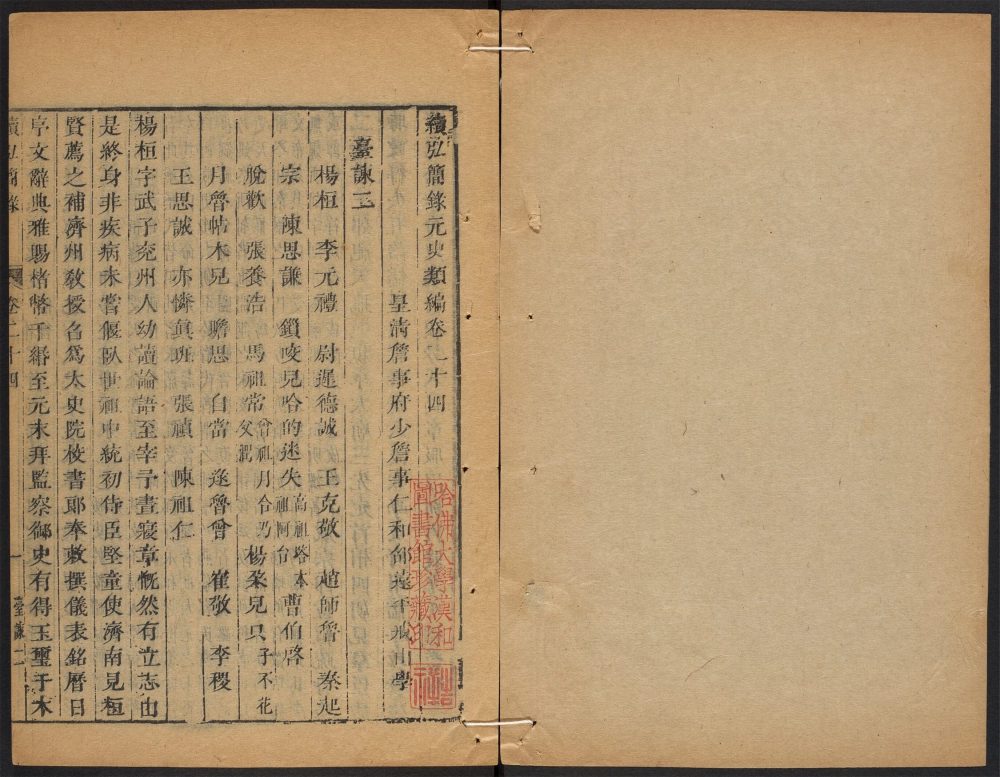 續弘簡錄元史類編卷二十四
皇清詹事府少詹事仁和邵遠平戒山學
臺諫二
楊桓 李元禮 尉遲德誠 王克敬 趙師魯 秦起
宗 陳思謙 鎖咬兒哈的迷失 高祖塔本 祖阿台 曹伯啓
脫歡 張養浩 馬祖常 曾祖月合乃 父潤 楊朶兒只 子不花
月魯帖木兒 贍思 自當 逯魯曾 崔敬 李稷
王思誠 亦憐眞班 張禎 陳祖仁
楊桓字武子兖州人幼讀論語至宰予晝寢章慨然有立志由
是終身非疾病未嘗偃臥世祖中統初侍臣堅童使濟南見桓
賢薦之補濟州教授名爲太史院校書郎奉敕撰儀表銘曆日
序文辭典雅賜楮幣千緡至元末拜監察御史有得玉璽于木
續弘簡錄 卷二十四 一 臺諫二
哈佛大學漢和圖書館珍藏印